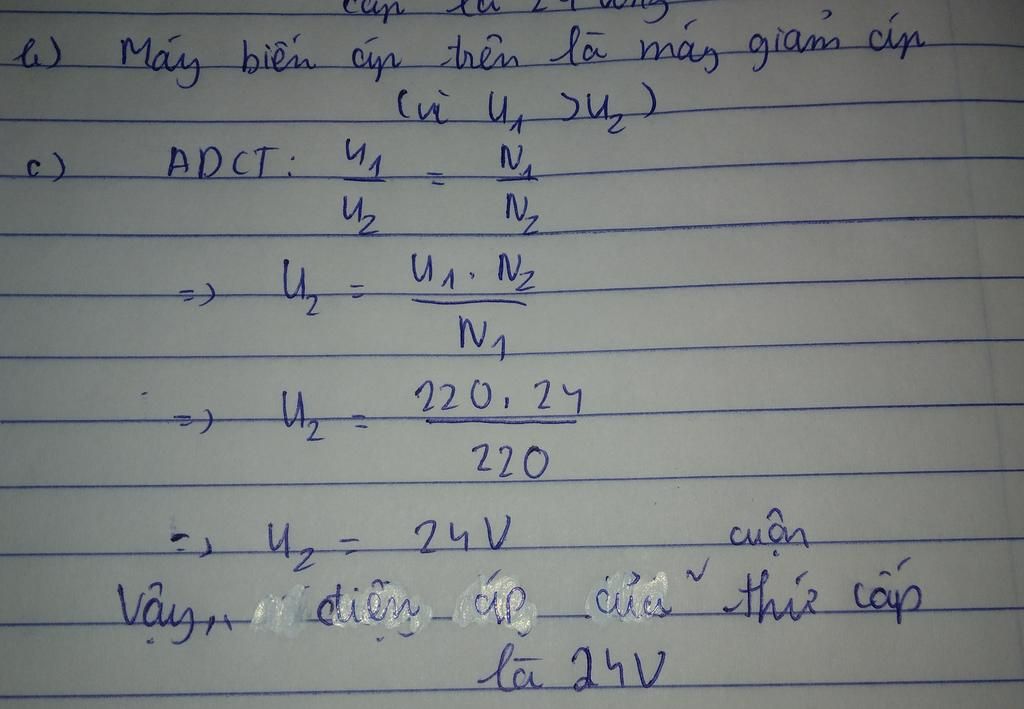 cấp là 24 vòng
b) Máy biến áp trên là máy giảm áp
(vì U₁ > U₂)
c) ADCT: U₁/U₂ = N₁/N₂
=> U₂ = U₁. N₂/N₁
=> U₂ = 220. 24/220
=> U₂ = 24V
Vậy, điện áp của cuộn thứ cấp
là 24V